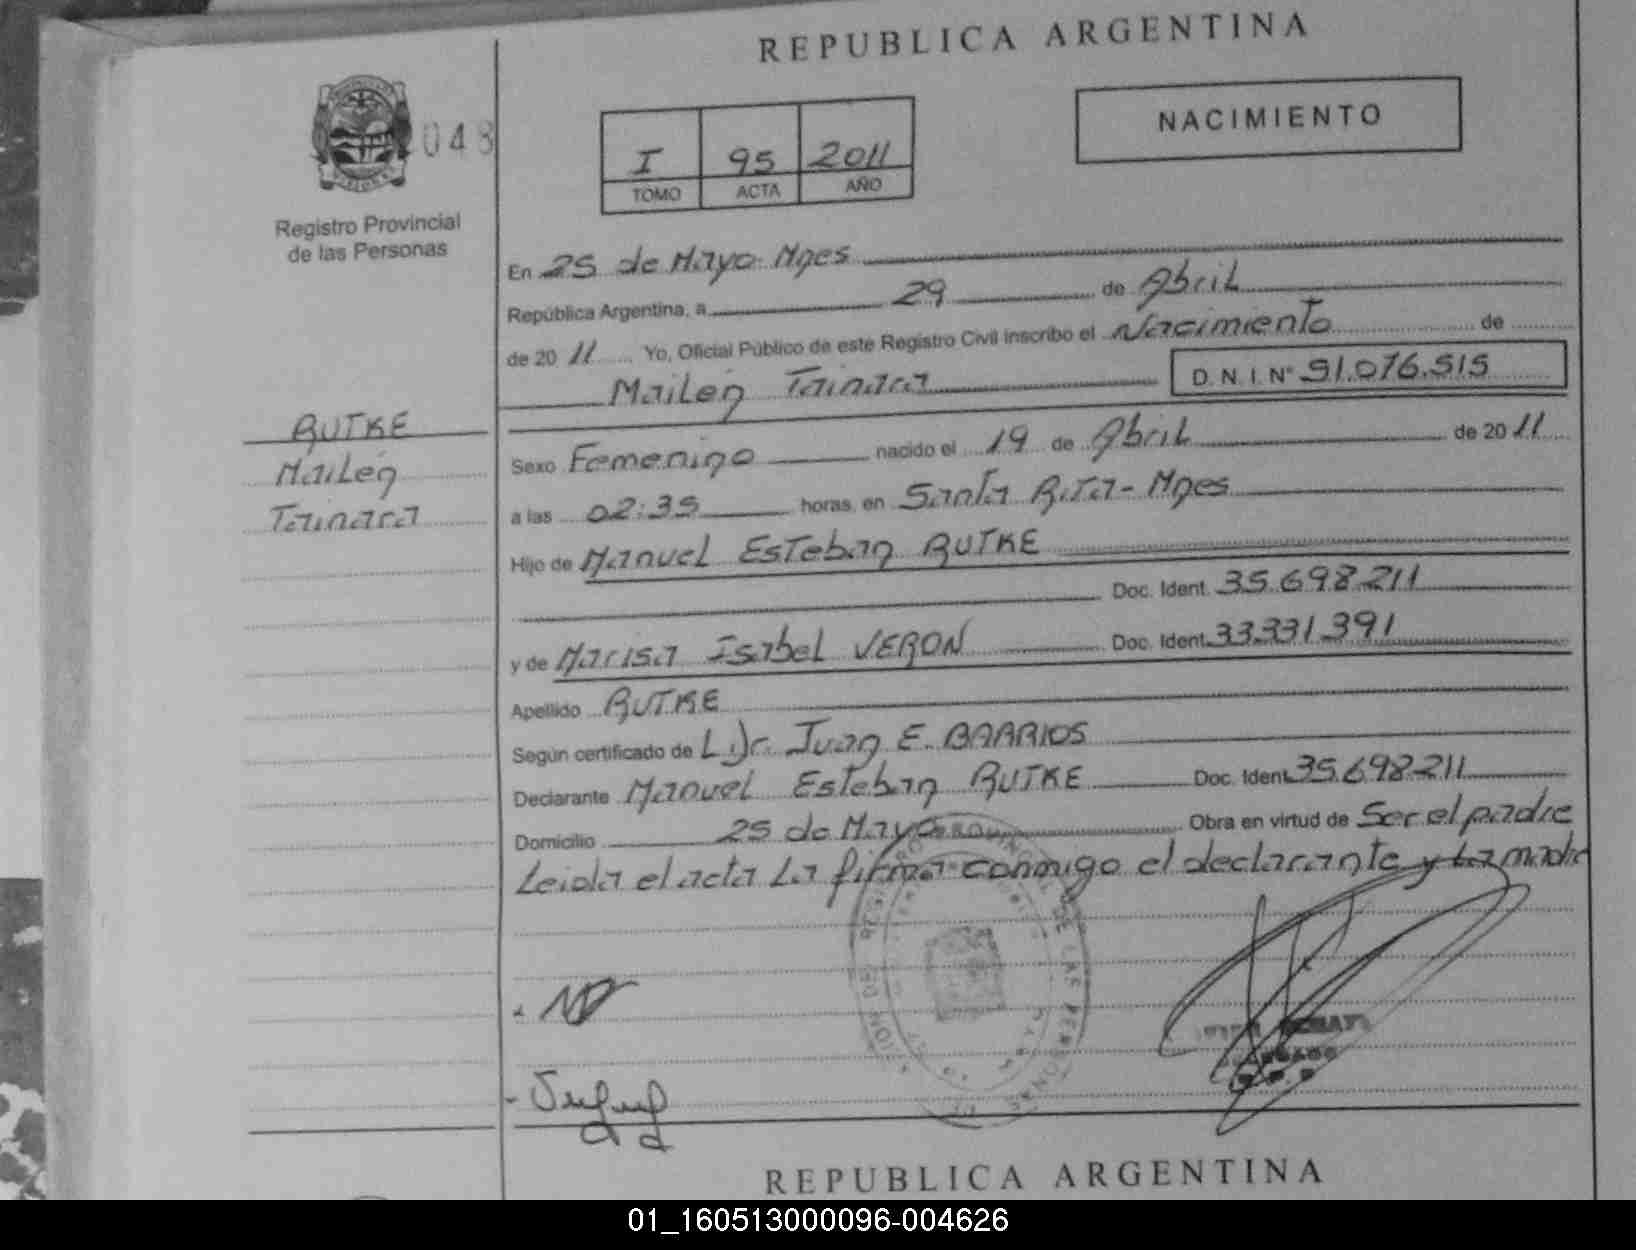 REPUBLICA ARGENTINA
048
Registro Provincial
de las Personas
I 95 2011
TOMO ACTA AÑO
NACIMIENTO
En 25 de Mayo-Mnes
República Argentina, a 29 de Abril
de 20 11 Yo, Oficial Público de este Registro Civil inscribo el Nacimiento de
Mailen Tainara D. N. I. N° 51.076.515
RUTKE
Mailen
Tainara
Sexo Femenino nacido el 19 de Abril de 20 11
a las 02:35 horas, en Santa Rita-Mnes
Hijo de Manuel Esteban RUTKE
Doc. Ident. 35.698.211
y de Marisa Isabel VERON Doc. Ident. 33.331.391
Apellido RUTKE
Según certificado de Juan E. BARRIOS
Declarante Manuel Esteban RUTKE Doc. Ident. 35.698.211
Domicilio 25 de Mayo Obra en virtud de Ser el padre
Leida el acta La firma conmigo el declarante y La madre
REPUBLICA ARGENTINA
01_160513000096-004626